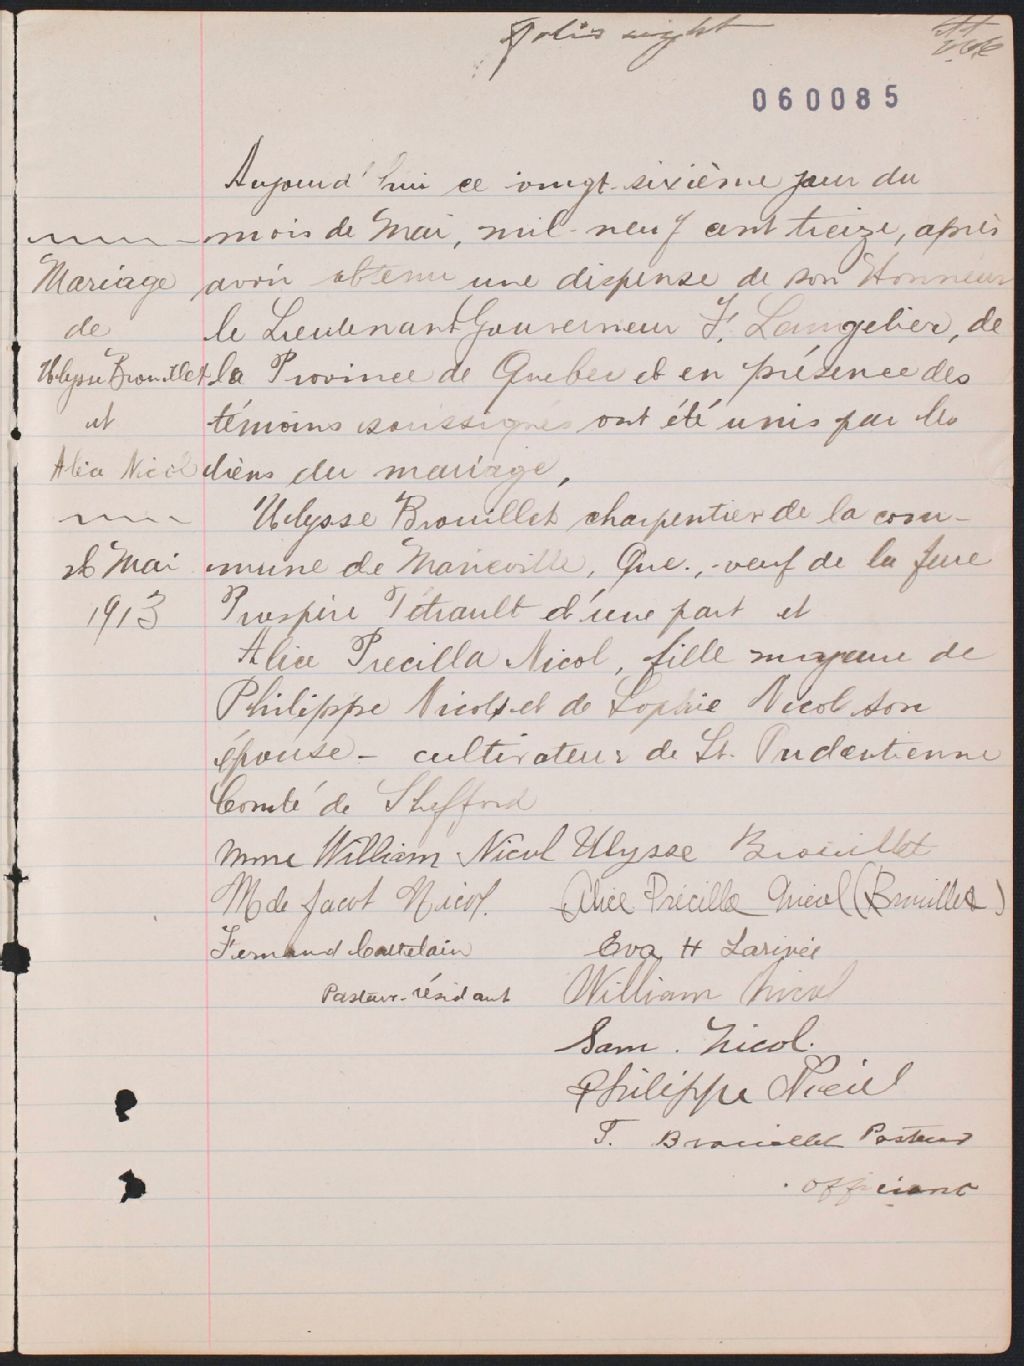 Folio eight
060085
Aujourd'hui ce vingt-sixième jour du
mois de Mai, mil-neuf cent treize, après
avoir obtenu une dispense de son Honneur
le Lieutenant Gouverneur F. Langelier, de
la Province de Quebec et en présence des
témoins soussignés ont été unis par les
liens du mariage,
Ulysse Brouillet charpentier de la com-
mune de Marieville, Que., veuf de la feue
Prospère Tétrault d'une part et
Alice Precilla Nicol, fille majeure de
Philippe Nicol et de Sophie Nicol son
épouse - cultivateur de St. Pudentienne
Comté de Shefford
Mariage
de
Ulysse Brouillet
et
Alice Nicol
26 Mai
1913
Mme William Nicol Ulysse Brouillet
M de Jacot Nicol. Alice Précilla Nicol (Brouillet)
Fernand Castelain Eva H Larivée
Pasteur-résidant William Nicol
Sam. Nicol.
Philippe Nicol
T. Brouillet Pasteur
officiant